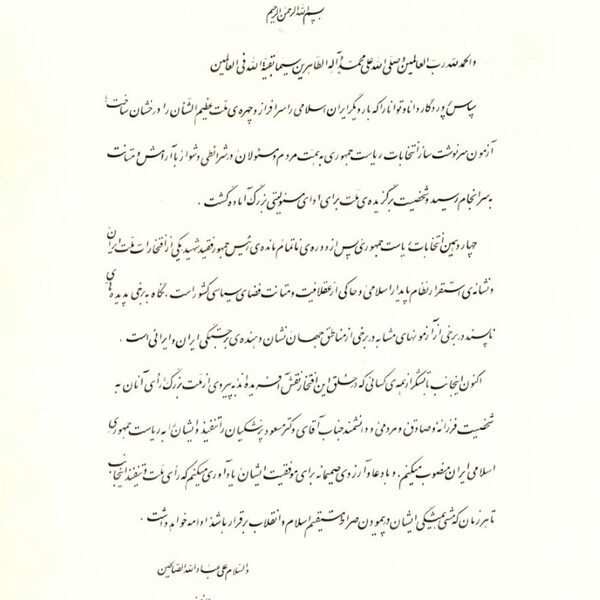 بسم الله الرحمن الرحیم
والحمد لله رب العالمین و صلی الله علی محمد و آله الطاهرین سیما بقیة الله فی العالمین
سپاس پروردگار دانا و توانا را که بار دیگر ایران اسلامی را سرافراز و چهره‌ی ملت عظیم الشأن را درخشان ساخت؛
آزمون سرنوشت ساز انتخابات ریاست جمهوری به همت مردم و مسئولان در شرائطی دشوار با آرامش و متانت
به سرانجام رسید و شخصیت برگزیده‌ی ملت برای ادای مسئولیتی بزرگ آماده گشت .
چهاردهمین انتخابات ریاست جمهوری پس از دوره‌ی ناتمام مانده‌ی رئیس جمهور فقید شهید یکی از افتخارات ملت ایران
و نشانه‌ی استقرار نظام پایدار اسلامی و حاکی از عقلانیت و متانت فضای سیاسی کشور است . نگاه به برخی پدیده‌های
ناپسند در برخی از آزمونهای مشابه در برخی از مناطق جهان نشان دهنده‌ی برجستگی ایران و ایرانی است .
اکنون اینجانب با تشکر از همه‌ی کسانی که در خلق این افتخار نقش آفریده‌اند به پیروی از ملت بزرگ رأی آنان به
شخصیت فرزانه و صادق و مردمی و دانشمند جناب آقای دکتر مسعود پزشکیان را تنفیذ و ایشان را به ریاست جمهوری
اسلامی ایران منصوب میکنم . و با دعا و آرزوی صمیمانه برای موفقیت ایشان یادآوری میکنم که رأی ملت و تنفیذ اینجانب
تا هر زمان که مشی همیشگی ایشان در پیمودن صراط مستقیم اسلام و انقلاب برقرار باشد ادامه خواهد داشت .
والسلام علی عباد الله الصالحین